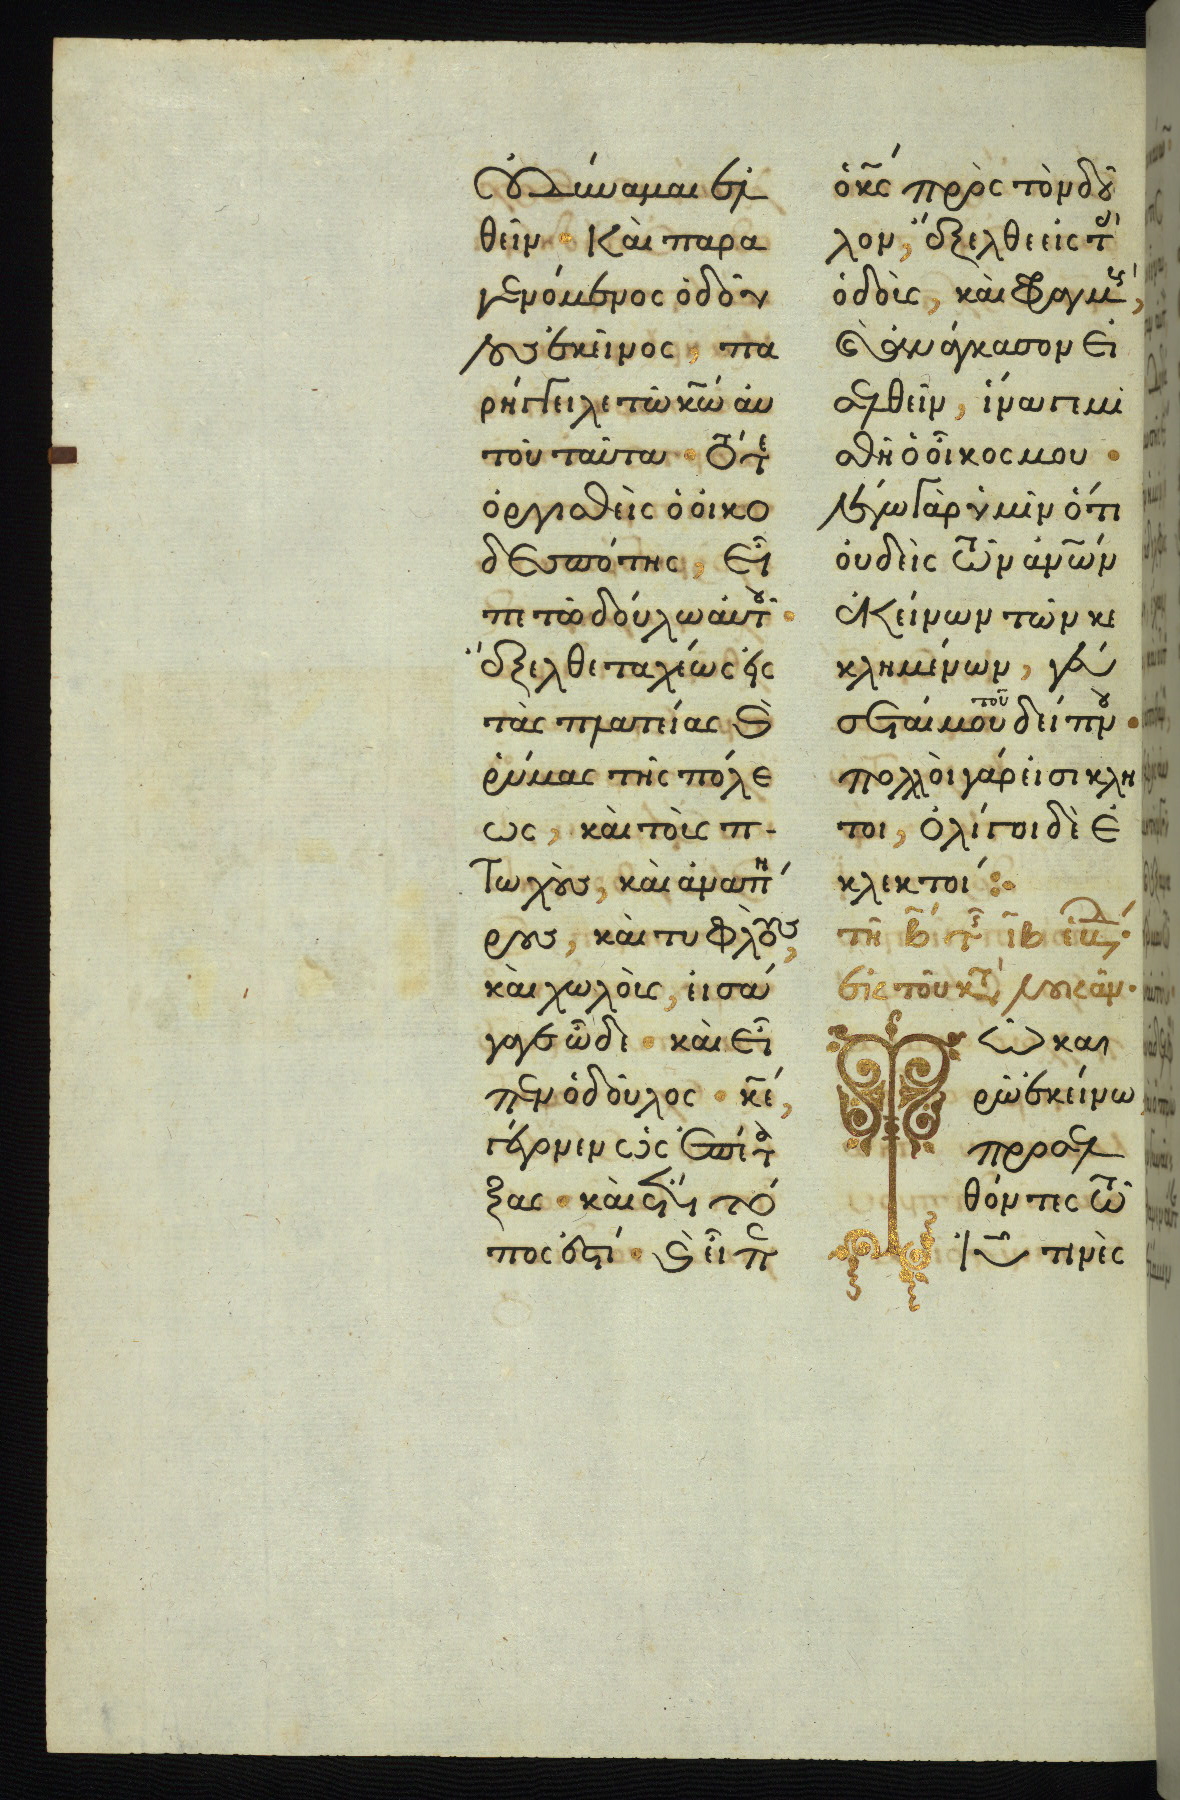 οὐ δύναμαι ἐλ
θεῖν · Καὶ παρα
γενόμενος ὁ δοῦ
λος ἐκεῖνος, πα
ρήγγειλε τῶ κω̅ αὐ
τοῦ ταῦτα · Τότε
ὀργισθεὶς ὁ οἰκο
δεσπότης, εἶ
πε τῶ δούλω αὐτοῦ ·
ἔξελθε ταχέως εἰς
τὰς πλατείας καὶ
ῥύμας τῆς πόλε
ως, καὶ τοὺς π
τωχοὺς, καὶ ἀναπή
ρους, καὶ τυφλοὺς,
καὶ χωλοὺς, εἰσά
γαγε ὧδε · καὶ εἶ
πεν ὁ δοῦλος · κε̅,
γέγονεν ὡς ἐπέτα
ξας · καὶ ἔτι τό
πος ἐστί · καὶ εἶπεν
ὁ κς̅ πρὸς τὸν δοῦ
λον, ἔξελθε εἰς τὰς
ὁδοὺς, καὶ φραγμοὺς,
καὶ ἀνάγκασον εἰ
σελθεῖν, ἵνα γεμι
σθῆ ὁ οἶκος μου ·
λέγω γὰρ ὑμῖν ὅτι
οὐδεὶς τῶν ἀνω̅ν
ἐκείνων τῶν κε
κλημένων, γεύ
σεταί μου τοῦ δείπνου ·
πολλοὶ γάρ εἰσι κλη
τοι, ὀλίγοι δὲ ἐ
κλεκτοί :·
ῶ και
ρῶ ἐκείνω
προσελ
θόντες τῶ
ιυ̅ τινὲς